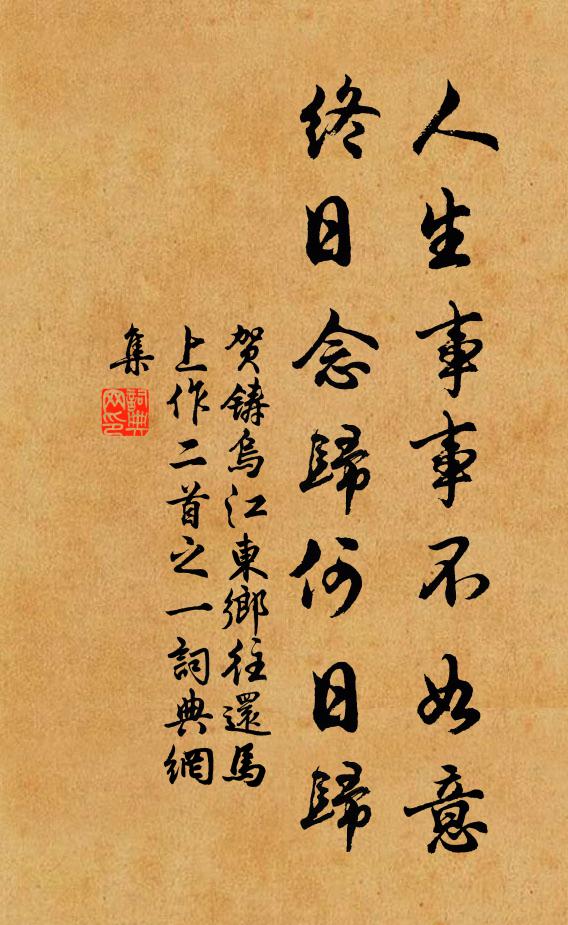 人生事事不如意
終日念歸何日歸
贺鑄烏江東鄉往還馬
上作二首之一詞典網
集
詞典
网印